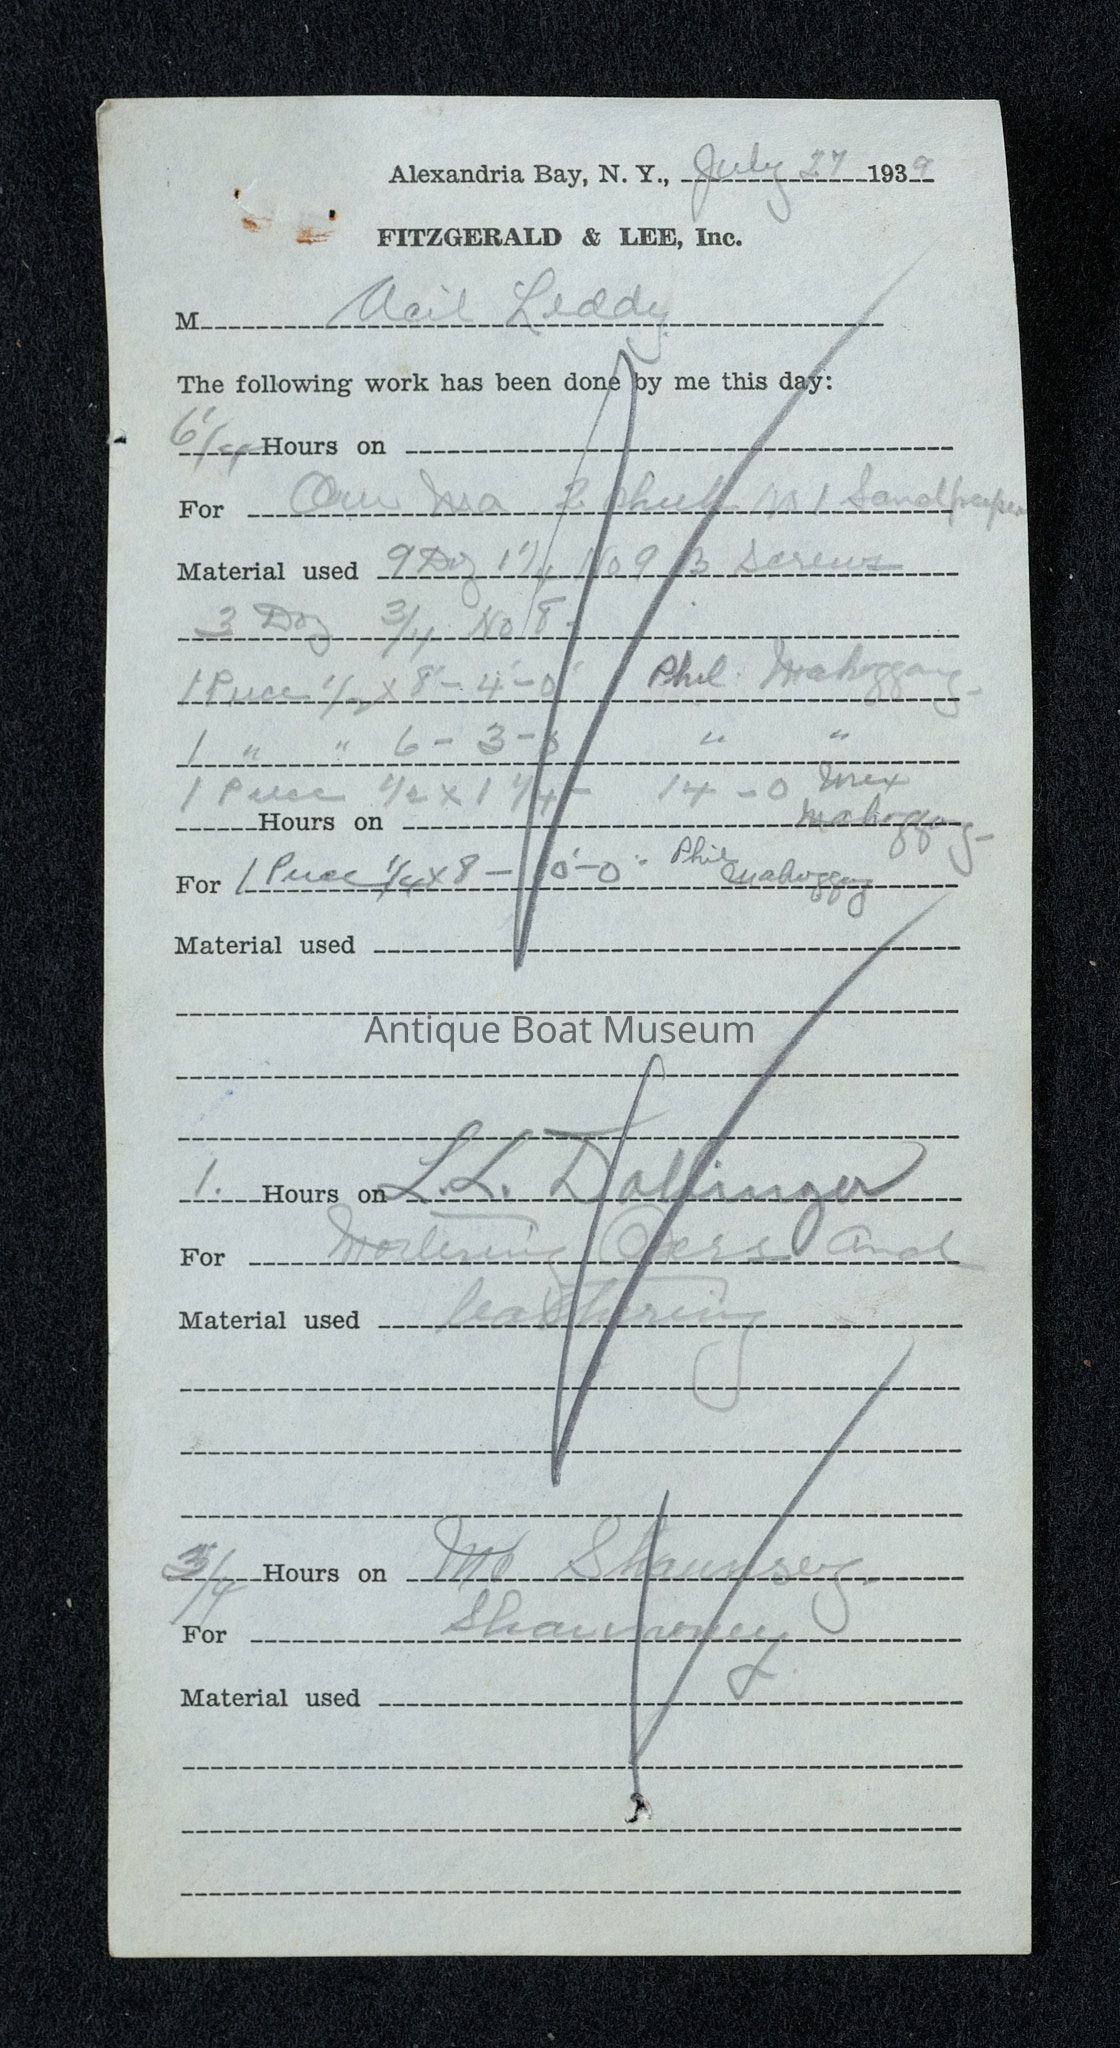 Alexandria Bay, N. Y., July 27 1939
FITZGERALD & LEE, Inc.
M Leddy
The following work has been done by me this day:
6 1/4 Hours on
For 2 Sheets No 1 Sandpaper
Material used 9 Doz 1 1/4 No 9 B Screws
3 Doz 3/4 No 8 -
1 Piece 1/2 x 8 - 4'-0" Phil Mahoggany -
1 " " 6 - 3 - 0 " "
1 Piece 1/2 x 1 1/4 - 14 - 0 Mex
Hours on Mahoggany -
For 1 Piece 1/4 x 8 - 10'-0" - Phil Mahoggany
Material used
Antique Boat Museum
1. Hours on L.L. Dollinger
For Oars and
Material used leathering
3/4 Hours on
For
Material used